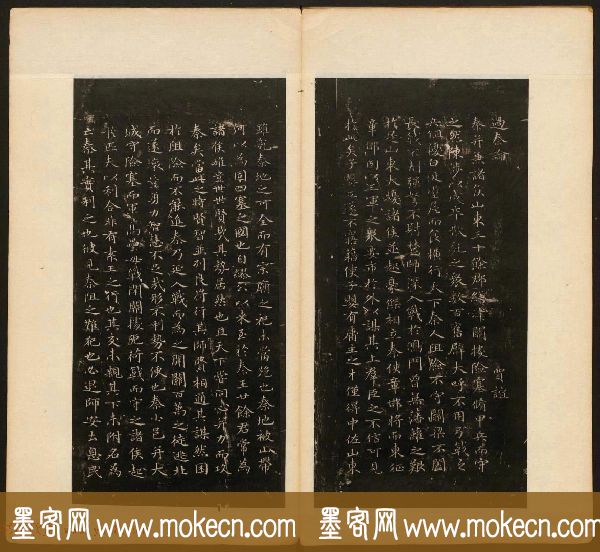 過秦論
賈誼
秦并兼諸侯山東三十餘郡繕津關據險塞脩甲兵而守
之然陳涉以戍卒散亂之眾數百奮臂大呼不用弓戟之
兵鉏櫌白梃望屋而食橫行天下秦人阻險不守關梁不闔
長戟不刺强弩不射楚師深入戰於鴻門曾無藩籬之艱
於是山東大擾諸侯並起豪俊相立秦使章邯將而東征
章邯因以三軍之眾要市於外以謀其上羣臣之不信可見
於此矣子嬰立遂不寤藉使子嬰有庸主之才僅得中佐山東
雖亂秦地之可全而有宗廟之祀未當絕也秦地被山帶
河以為固四塞之國也自繆公以來至於秦王廿餘君常為
諸侯雄豈世世賢哉其勢居然也且天下嘗同心并力而攻
秦矣當此之時賢智並列良將行其師賢相通其謀然困
於阻險而不能進秦乃延入戰而為之開關百萬之徒逃北
而遂壞豈勇力智慧不足哉形不利勢不便也秦小邑并大
城守險塞而軍高壘毋戰閉關據阨荷戟而守之諸侯起
於匹夫以利合非有素王之行也其交未親其下未附名為
亡秦其實利之也彼見秦阻之難犯也必退師安土息民
墨客网 www.mokecn.com 墨客网 www.mokecn.com